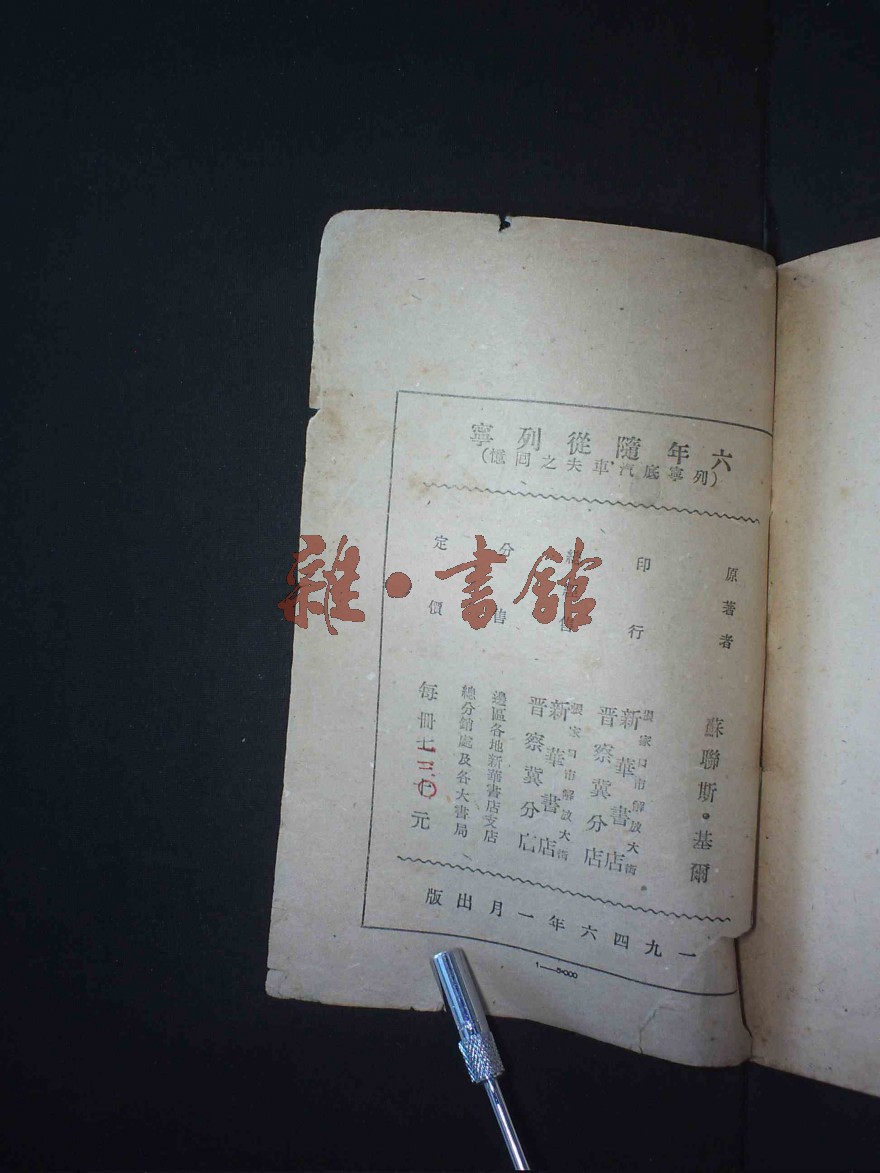 六年隨從列寧
(列寧底汽車夫之回憶)
原著者 蘇聯斯·基爾
印行 張家口市解放大街
新華書店
晋察冀分店
總經售 張家口市解放大街
新華書店
晋察冀分店
分售 邊區各地新華書店支店
總分銷處及各大書局
定價 每冊元
一九四六年一月出版
1—5·000
雜·書館